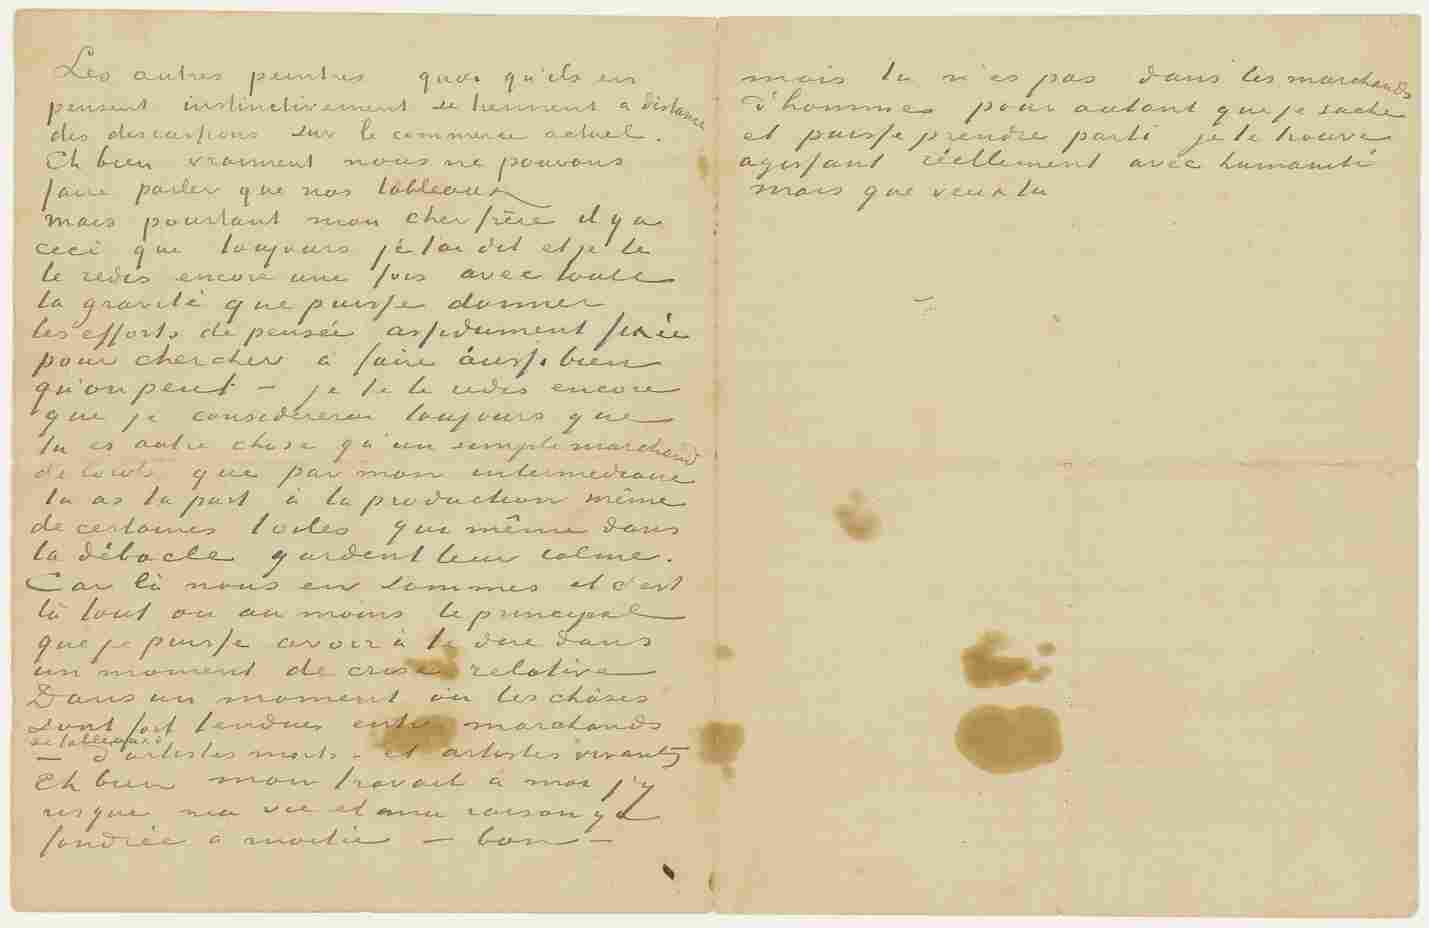 Les autres peintres quoi qu'ils en
pensent instinctivement se tiennent a distance
des discussions sur le commerce actuel.
Eh bien vraiment nous ne pouvons
faire parler que nos tableaux
mais pourtant mon cher frère il y a
ceci que toujours je t'ai dit et je te
le redis encore une fois avec toute
la gravité que puisse donner
les efforts de pensée assidument fixée
pour chercher à faire aussi bien
qu'on peut – je te le redis encore
que je considererai toujours que
tu es autre chose qu'un simple marchand
de Corots que par mon intermediaire
tu as ta part à la production même
de certaines toiles qui même dans
la débacle gardent leur calme.
Car là nous en sommes et c'est
là tout ou au moins le principal
que je puisse avoir à te dire dans
un moment de crise relative
Dans un moment où les choses
sont fort tendues entre marchands
de tableaux
– d'artistes morts – et artistes vivants
Eh bien mon travail à moi j'y
risque ma vie et ma raison y a
fondrée a moitié – bon –
mais tu n'es pas dans les marchands
d'hommes pour autant que je sache
et puisse prendre parti je te trouve
agissant réellement avec humanité
mais que veux tu